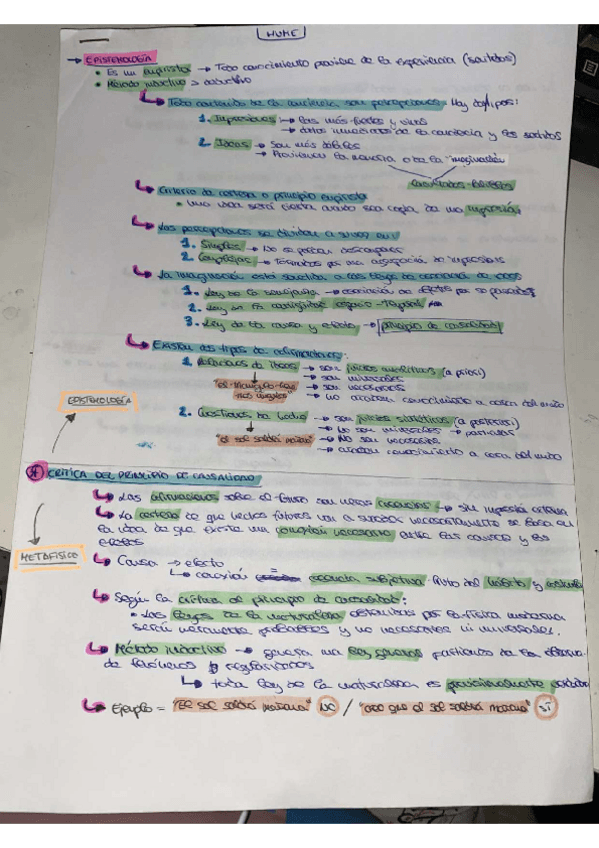 HUME
→ EPISTEMOLOGÍA
• Es un empirista → Todo conocimiento proviene de la experiencia (sentidos)
• Método inductivo >
↳ Todo contenido de la conciencia son percepciones. Hay dos tipos:
1. Impresiones → Las más fuertes y vivas
→ datos inmediatos de la conciencia y los sentidos
2. Ideas → Son más débiles
→ Provienen la memoria o de la "imaginación"
↳ Criterio de certeza o principio empirista
• Una idea será cierta cuando sea copia de una impresión.
↳ Las percepciones se dividen a su vez en:
1. Simples → No se pueden descomponer
2. Complejas → Formadas por una asociación de impresiones
↳ La imaginación está sometida a las leyes de asociación de ideas
1. Ley de la semejanza → asociación de por su parecido
2. Ley de la contigüidad espacio-temporal
3. Ley de la causa y efecto → principio de causalidad
↳ Existen dos tipos de afirmaciones:
1. Relaciones de ideas → son juicios analíticos (a priori)
→ son universales
→ son necesarios
→ no aportan conocimiento a cerca del mundo
"El triángulo tiene tres ángulos"
EPISTEMOLOGÍA
2. Cuestiones de hecho → son juicios sintéticos (a posteriori)
→ No son universales → particular
→ No son necesarios
→ aportan conocimiento a cerca del mundo
"el sol saldrá mañana"
CRÍTICA DEL PRINCIPIO DE CAUSALIDAD
↳ Las afirmaciones sobre el futuro son meras creencias → Sin impresión
↳ La certeza de que hechos futuros van a suceder necesariamente se basa en
la idea de que existe una conexión necesaria entre las causas y los
efectos
METAFÍSICO
↳ Causa → efecto
↳ conexión creencia subjetiva fruto del hábito y
↳ Según la crítica al principio de causalidad:
• Las leyes de la naturaleza obtenidas por la física moderna
serán meramente probables y no necesarias ni universales.
↳ Método inductivo → genera una ley general partiendo de la
de fenómenos regularidades
↳ toda ley de la naturaleza es provisionalmente
↳ Ejemplo = "El sol saldrá mañana" NO / "creo que el sol saldrá mañana" SÍ